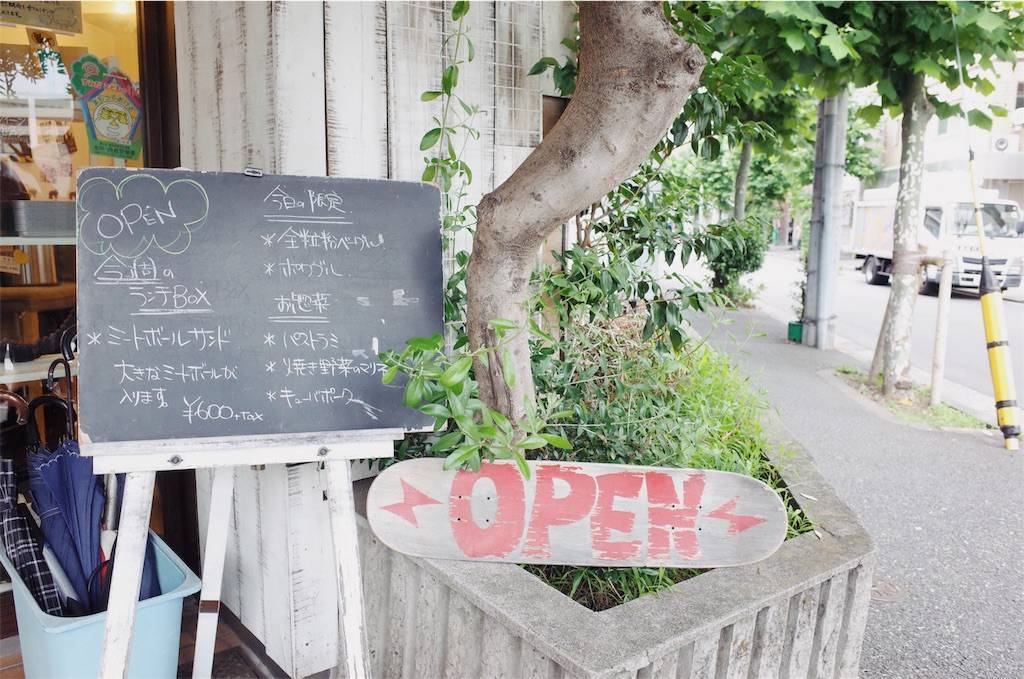 OPEN
今週の
ランチBOX
*ミートボールサンド
大きなミートボールが
入ります。 ¥600+TAX
今日の限定
*全粒粉ベーグル
*ホワグル
お惣菜
*パストラミ
*焼き野菜のマリネ
*キューバポーク
OPEN